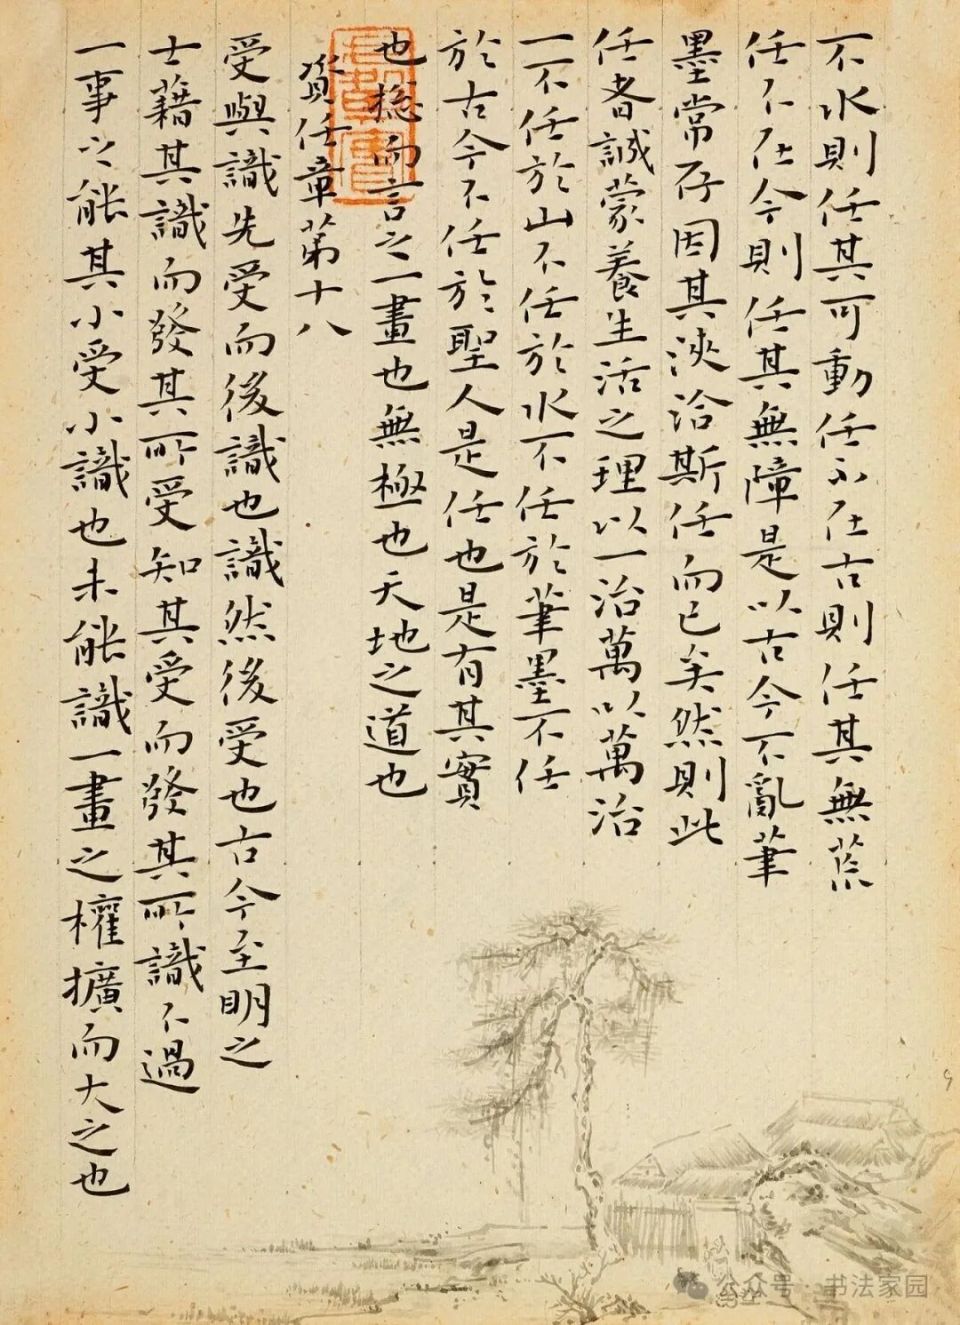 不水則任其可動任不在古則任其無荒
任不在今則任其無障是以古今不亂筆
墨常存因其浹洽斯任而已矣然則此
任者誠蒙養生活之理以一治萬以萬治
一不任於山不任於水不任於筆墨不任
於古今不任於聖人是任也是有其實
也捴而言之一畫也無極也天地之道也
資任章第十八
受與識先受而後識也識然後受也古今至明之
士藉其識而發其所受知其受而發其所識不過
一事之能其小受小識也未能識一畫之權擴而大之也
公众号 · 书法家园